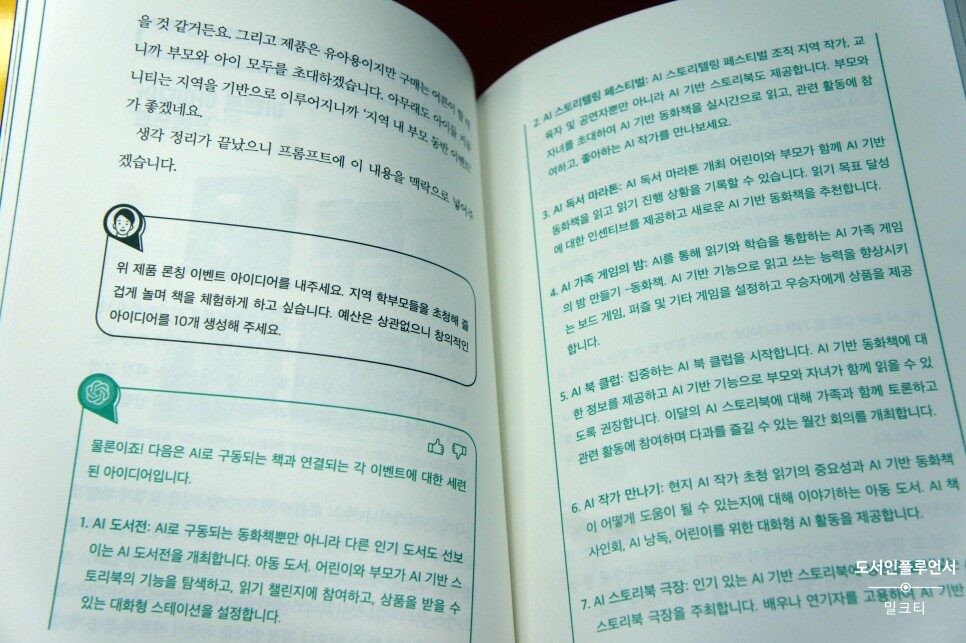 을 것 같거든요. 그리고 제품은 유아용이지만 구매는 어른이 할 테
니까 부모와 아이 모두를 초대하겠습니다. 아무래도 아이들 커뮤
니티는 지역을 기반으로 이루어지니까 ‘지역 내 부모 동반 이벤트’
가 좋겠네요.
생각 정리가 끝났으니 프롬프트에 이 내용을 맥락으로 넣어주
겠습니다.
위 제품 론칭 이벤트 아이디어를 내주세요. 지역 학부모들을 초청해 즐
겁게 놀며 책을 체험하게 하고 싶습니다. 예산은 상관없으니 창의적인
아이디어를 10개 생성해 주세요.
물론이죠! 다음은 AI로 구동되는 책과 연결되는 각 이벤트에 대한 세련
된 아이디어입니다.
1. AI 도서전: AI로 구동되는 동화책뿐만 아니라 다른 인기 도서도 선보
이는 AI 도서전을 개최합니다. 아동 도서. 어린이와 부모가 AI 기반 스
토리북의 기능을 탐색하고, 읽기 챌린지에 참여하고, 상품을 받을 수
있는 대화형 스테이션을 설정합니다.
2. AI 스토리텔링 페스티벌: AI 스토리텔링 페스티벌 조직 지역 작가, 교
육자 및 공연자뿐만 아니라 AI 기반 스토리북도 제공합니다. 부모와
자녀를 초대하여 AI 기반 동화책을 실시간으로 읽고, 관련 활동에 참
여하고, 좋아하는 AI 작가를 만나보세요.
3. AI 독서 마라톤: AI 독서 마라톤 개최 어린이와 부모가 함께 AI 기반
동화책을 읽고 읽기 진행 상황을 기록할 수 있습니다. 읽기 목표 달성
에 대한 인센티브를 제공하고 새로운 AI 기반 동화책을 추천합니다.
4. AI 가족 게임의 밤: AI를 통해 읽기와 학습을 통합하는 AI 가족 게임
의 밤 만들기 -동화책. AI 기반 기능으로 읽고 쓰는 능력을 향상시키
는 보드 게임, 퍼즐 및 기타 게임을 설정하고 우승자에게 상품을 제공
합니다.
5. AI 북 클럽: 집중하는 AI 북 클럽을 시작합니다. AI 기반 동화책에 대
한 정보를 제공하고 AI 기반 기능으로 부모와 자녀가 함께 읽을 수 있
도록 권장합니다. 이달의 AI 스토리북에 대해 가족과 함께 토론하고
관련 활동에 참여하며 다과를 즐길 수 있는 월간 회의를 개최합니다.
6. AI 작가 만나기: 현지 AI 작가 초청 읽기의 중요성과 AI 기반 동화책
이 어떻게 도움이 될 수 있는지에 대해 이야기하는 아동 도서. AI 책
사인회, AI 낭독, 어린이를 위한 대화형 AI 활동을 제공합니다.
7. AI 스토리북 극장: 인기 있는 AI 기반 스토리북에
토리북 극장을 주최합니다. 배우나 연기자를 고용하여 AI 기반
도서인플루언서
밀크티